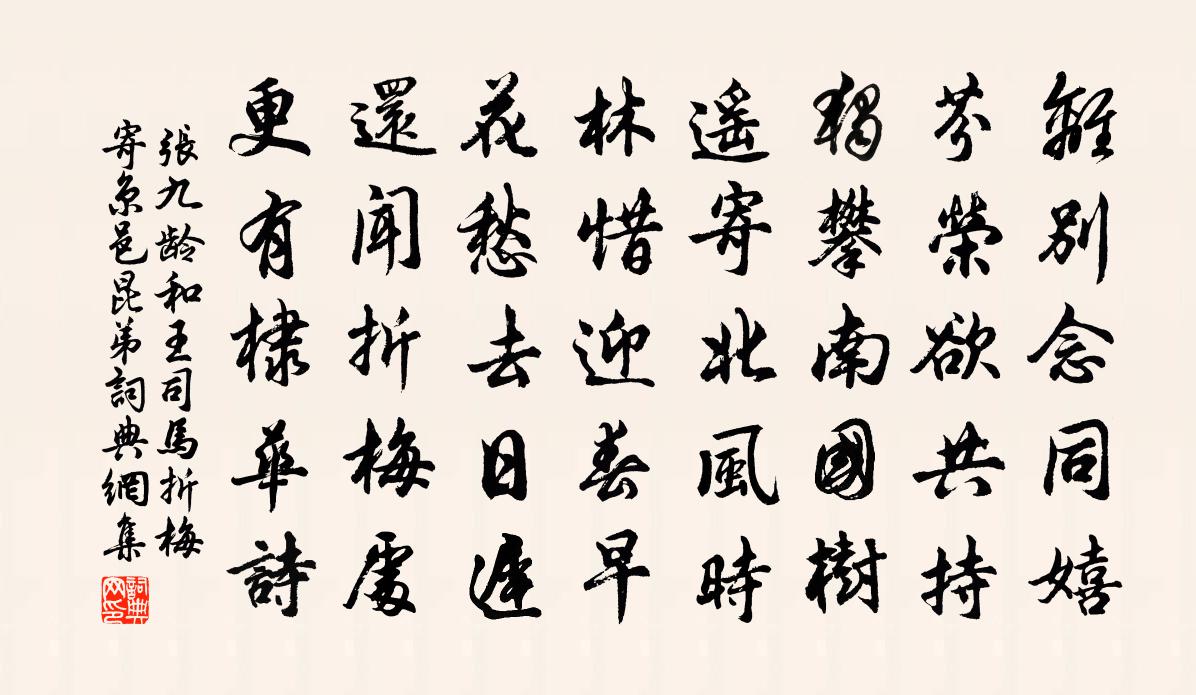 離別念同嬉
芬榮欲共持
獨攀南國樹
遙寄北風時
林惜迎春早
花愁去日遲
還聞折梅處
更有棣華詩
張九齡和王司馬折梅
寄京邑昆弟詞典網集
詞典網印